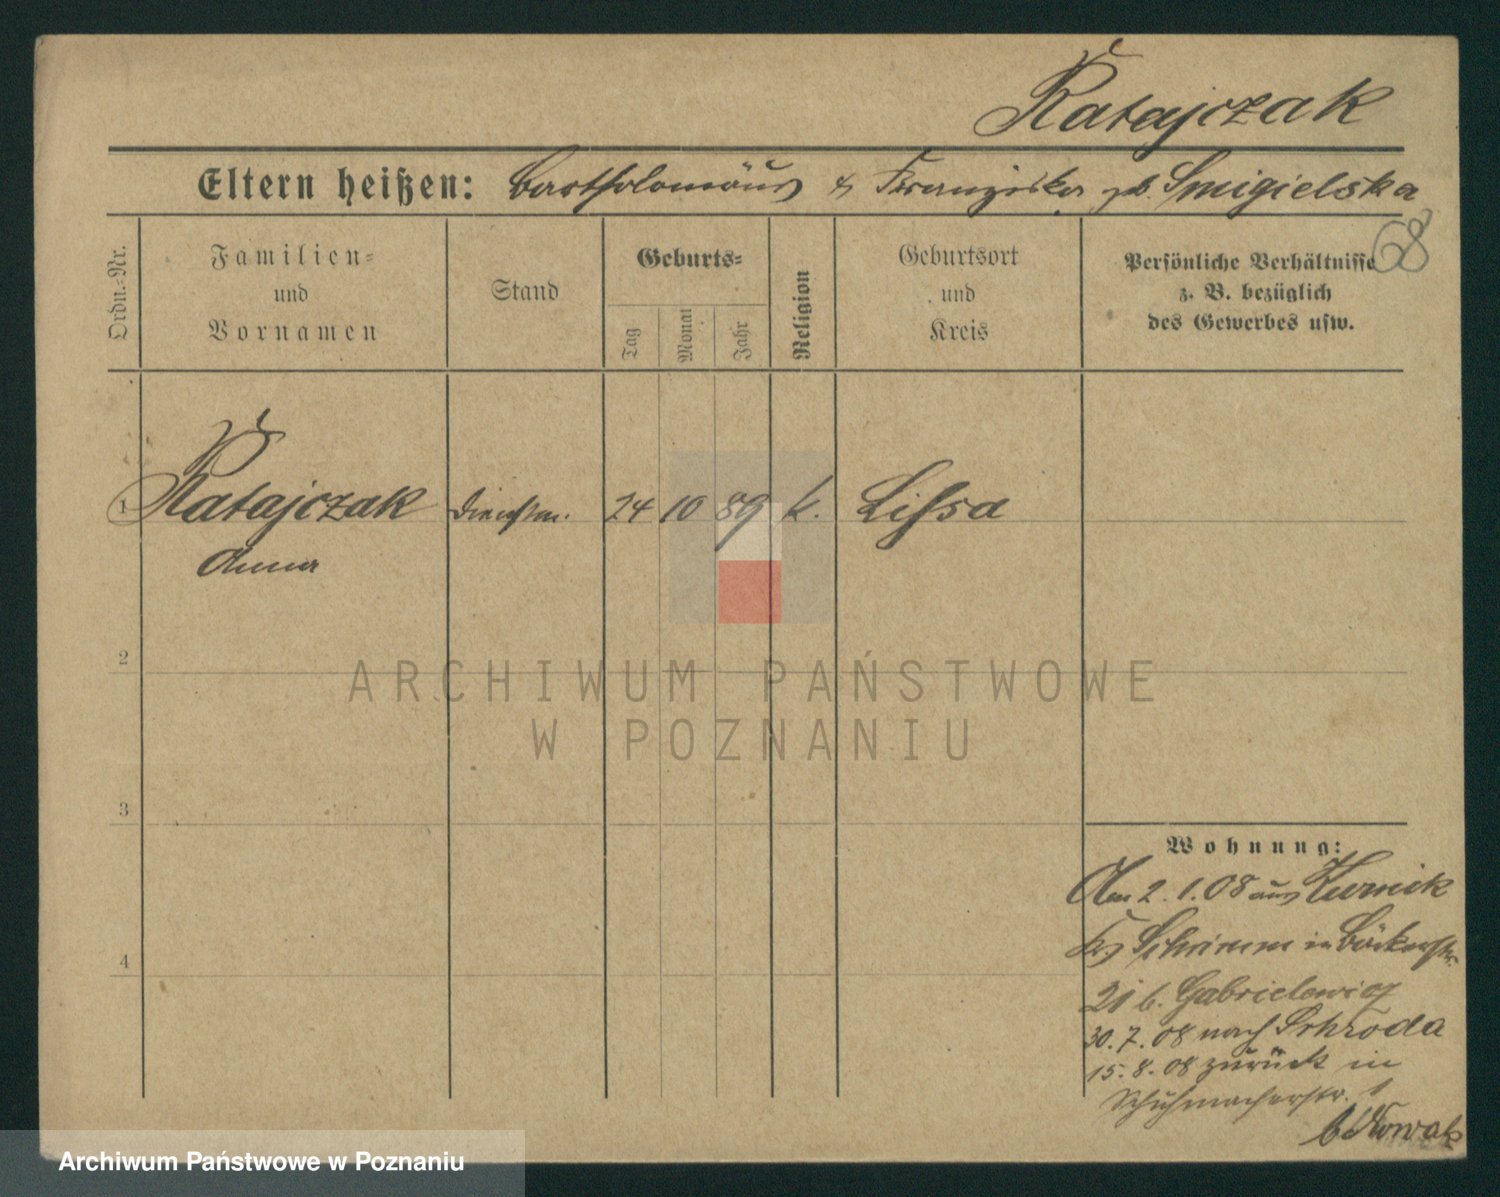 Ratajczak
Eltern heißen: Bartholomäus & Franziska geb. Smigielska
68
Ordn.=Nr.
Familien=
und
Vornamen
Stand
Geburts=
Tag
Monat
Jahr
Religion
Geburtsort
und
Kreis
Persönliche Verhältnisse
z. B. bezüglich
des Gewerbes usw.
1 Ratajczak Dienstm. 24 10 89 k. Lissa
Anna
2
ARCHIWUM PAŃSTWOWE
W POZNANIU
3
Wohnung:
Am 2.1.08 aus Kurnik
Krs Schrimm in Bäckerstr.
21 b. Gabrielewicz
4
30.7.08 nach Schroda
15.8.08 zurück in
Schuhmacherstr. 1
b Nowak
Archiwum Państwowe w Poznaniu